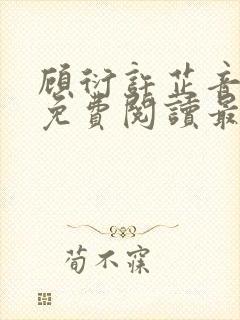 顾衍許芷音
免費閱讀最
荀不寐